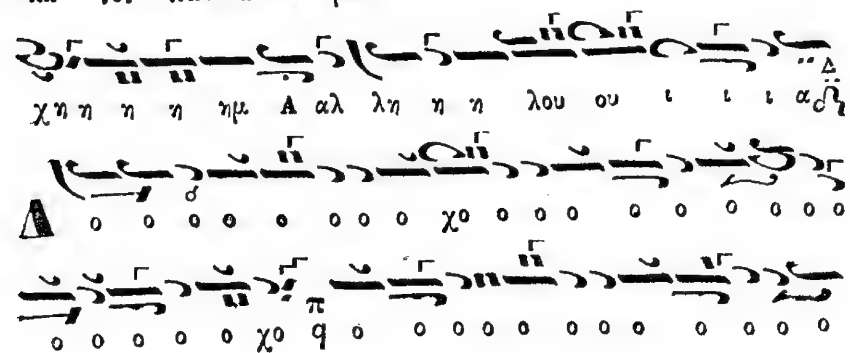 χη η η η ημ Α αλ λη η η λου ου ι ι ι α Δ
Α ο ο ο ο ο ο ο ο χο ο ο ο ο ο ο ο ο ο
ο ο ο ο ο χο π q ο ο ο ο ο ο ο ο ο ο ο ο